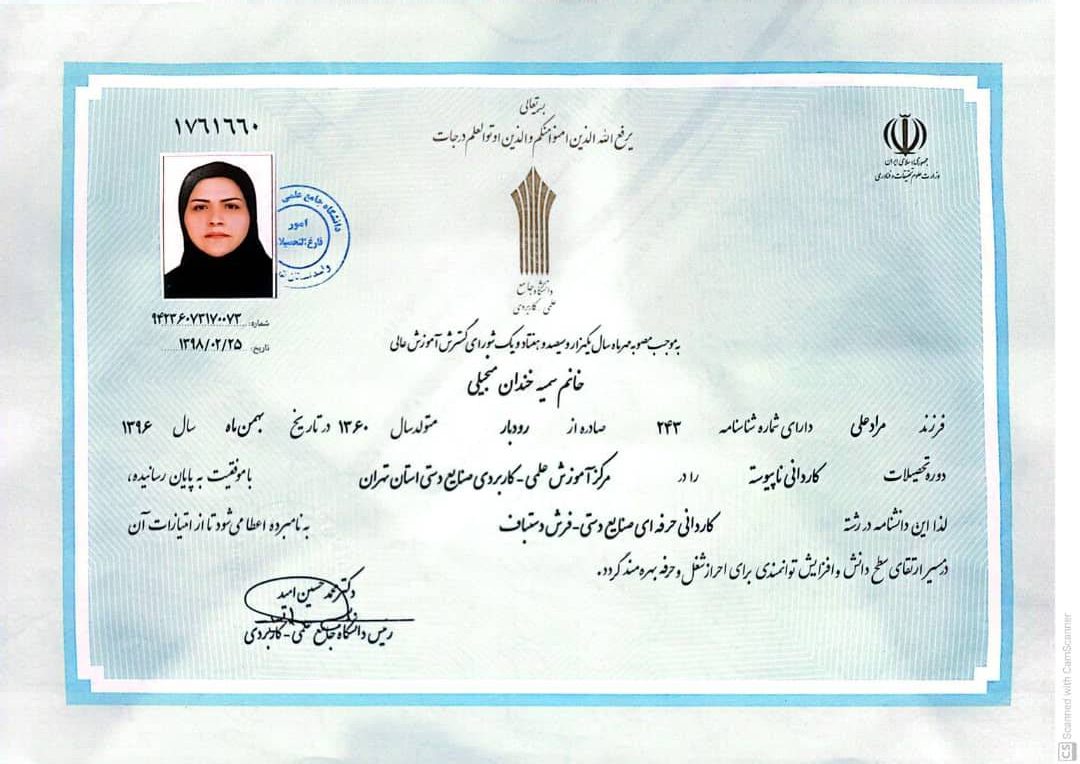 بسمه تعالی
یرفع الله الذین امنوا منکم والذین اوتوالعلم درجات
جمهوری اسلامی ایران
وزارت علوم تحقیقات و فناوری
۱۷۶۱۶۶۰
دانشگاه جامع علمی
امور
فارغ التحصیلا
دانشگاه جامع
علمی کاربردی
شماره: ۹۴۲۳۶۰۷۳۱۷۰۰۷۳
تاریخ: ۱۳۹۸/۰۲/۲۵
به موجب مصوبه مهرماه سال یکهزار و سیصد و هفتاد و یک شورای گسترش آموزش عالی
خانم سمیه خندان منجیلی
فرزند مرادعلی دارای شماره شناسنامه ۲۴۳ صادره از رودبار متولد سال ۱۳۶۰ در تاریخ بهمن ماه سال ۱۳۹۶
دوره تحصیلات کاردانی ناپیوسته را در مرکز آموزش علمی-کاربردی صنایع دستی استان تهران با موفقیت به پایان رسانیده،
لذا این دانشنامه در رشته کاردانی حرفه ای صنایع دستی-فرش دستباف به نامبرده اعطا می شود تا از امتیازات آن
در مسیر ارتقای سطح دانش و افزایش توانمندی برای احراز شغل و حرفه بهره مند گردد.
دکتر محمد حسین امید
رئیس دانشگاه جامع علمی-کاربردی
CS Scanned with CamScanner